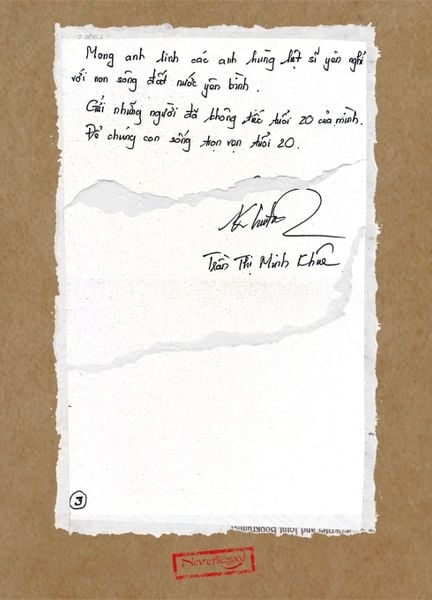 Mong anh linh các anh hùng liệt sĩ yên nghỉ
với non sông đất nước yên bình.
Gửi những người đã không tiếc tuổi 20 của mình.
Để chúng con sống trọn vẹn tuổi 20.
Trần Thị Minh Khuê
3